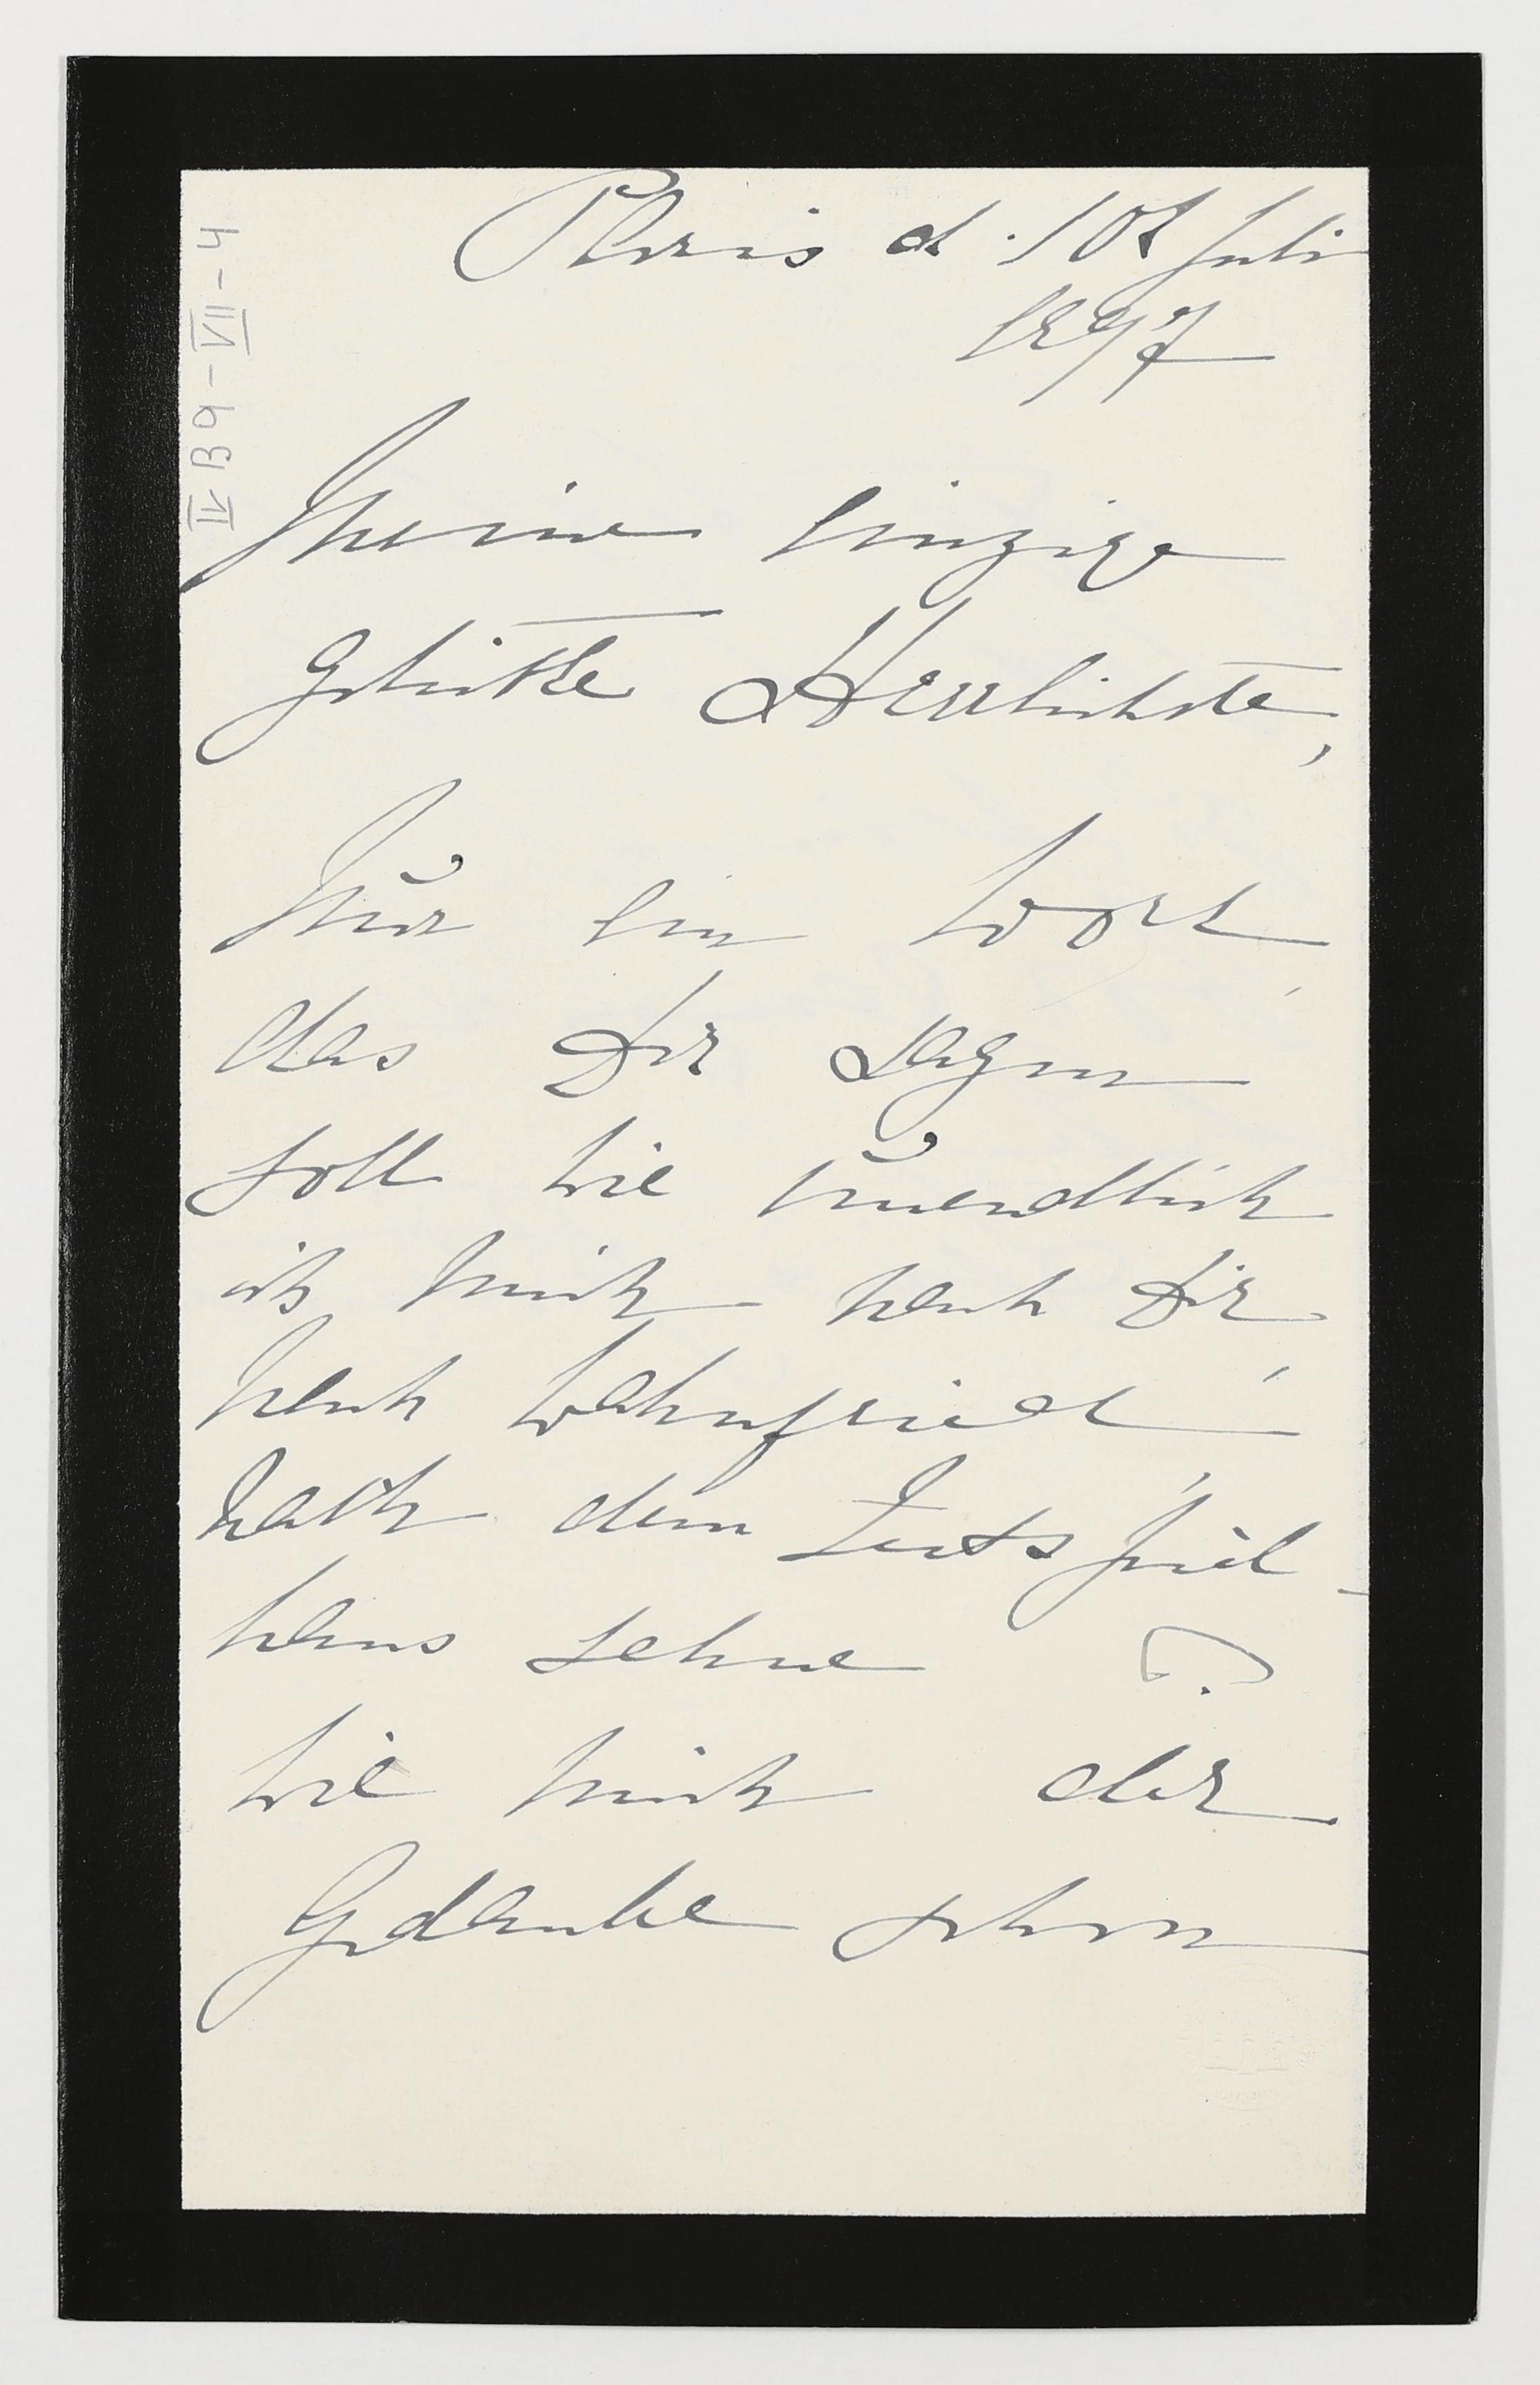 Paris d. 10t Juli
1897
IV B9-VII-4
Meine einzige
geliebte Herrlichste,
Nur ein Wort,
das Dir sagen
soll wie unendlich
ich mich nach Dir,
nach Wahnfried,
nach dem Festspiel-
haus sehne
wie mich der
Gedanke schon